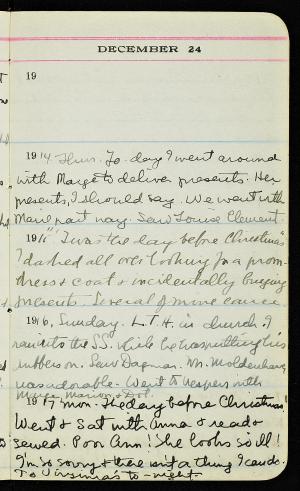 DECEMBER 24
19
1914 Thurs. To-day I went around
with Marge to deliver presents. Her
presents, I should say. We went with
Marie part way. Saw Louise Clement.
1915 "'Twas the day before Christmas"
I dashed all over looking for a prom-
dress & coat & incidentally buying
presents. Several of mine came.
1916, Sunday. L.T.H. in church. I
ran into the S.S. while he was putting his
rubbers on. Saw Dagmar. Mr. Moldenhawer
was adorable. Went to vespers with
Marge, Marion, & Dot.
1917 Mon. The day before Christmas!
Went & sat with Anna & read &
sewed. Poor Ann! She looks so ill!
I'm so sorry & there isn't a thing I can do.
To Virginia's to-night.